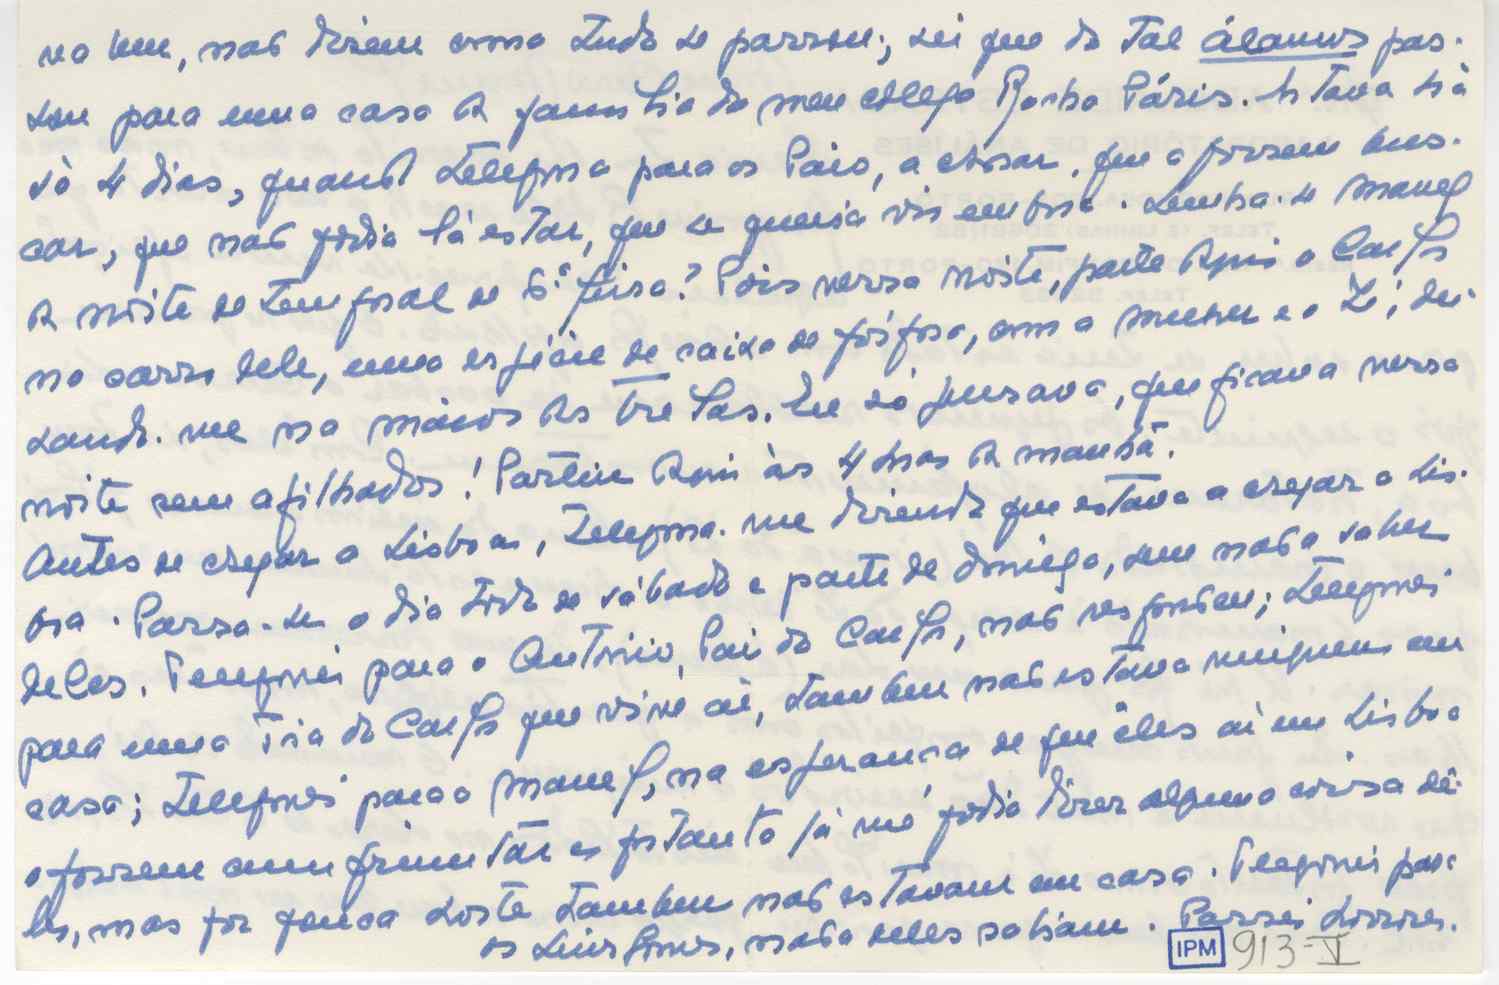 na bem, nao dizem como tudo se passou; sei que do tal álamos pas-
sou para uma casa da familia do meu colega Rocha Páris. Estava há
só 4 dias, quando telefona para os Pais, a chorar, que a fossem bus-
car, que nao podia lá estar, que se queria vir embora. Lembra-se Manel
da noite de temporal de 6ª feira? Pois nessa noite, parte daqui o Carlos
no carro dele, uma espécie de caixa de fósforo, com a mulher e o Zé; dei-
xando-me na mãos as trelas. Eu só pensava, que ficava nessa
noite sem afilhados! Partiu daqui às 4 horas da manhã.
Antes de chegar a Lisboa, telefona-me dizendo que estava a chegar a Lis-
boa. Passa-se o dia todo de sábado e parte de domingo, sem nada saber
deles. Telefonei para o António, Pai do Carlos, nao respondeu; telefonei
para uma Tia do Carlos que vive aí, tambem nao estava ninguem em
casa; telefonei para o Manel, na esperança de que êles aí em Lisboa
o fossem cumprimentar e portanto já me podia dizer alguma coisa dê-
les, mas por pouca sorte tambem nao estavam em casa. Telefonei para
os Luis Gomes, nada deles sabiam. Passei horrores.
IPM 913-V